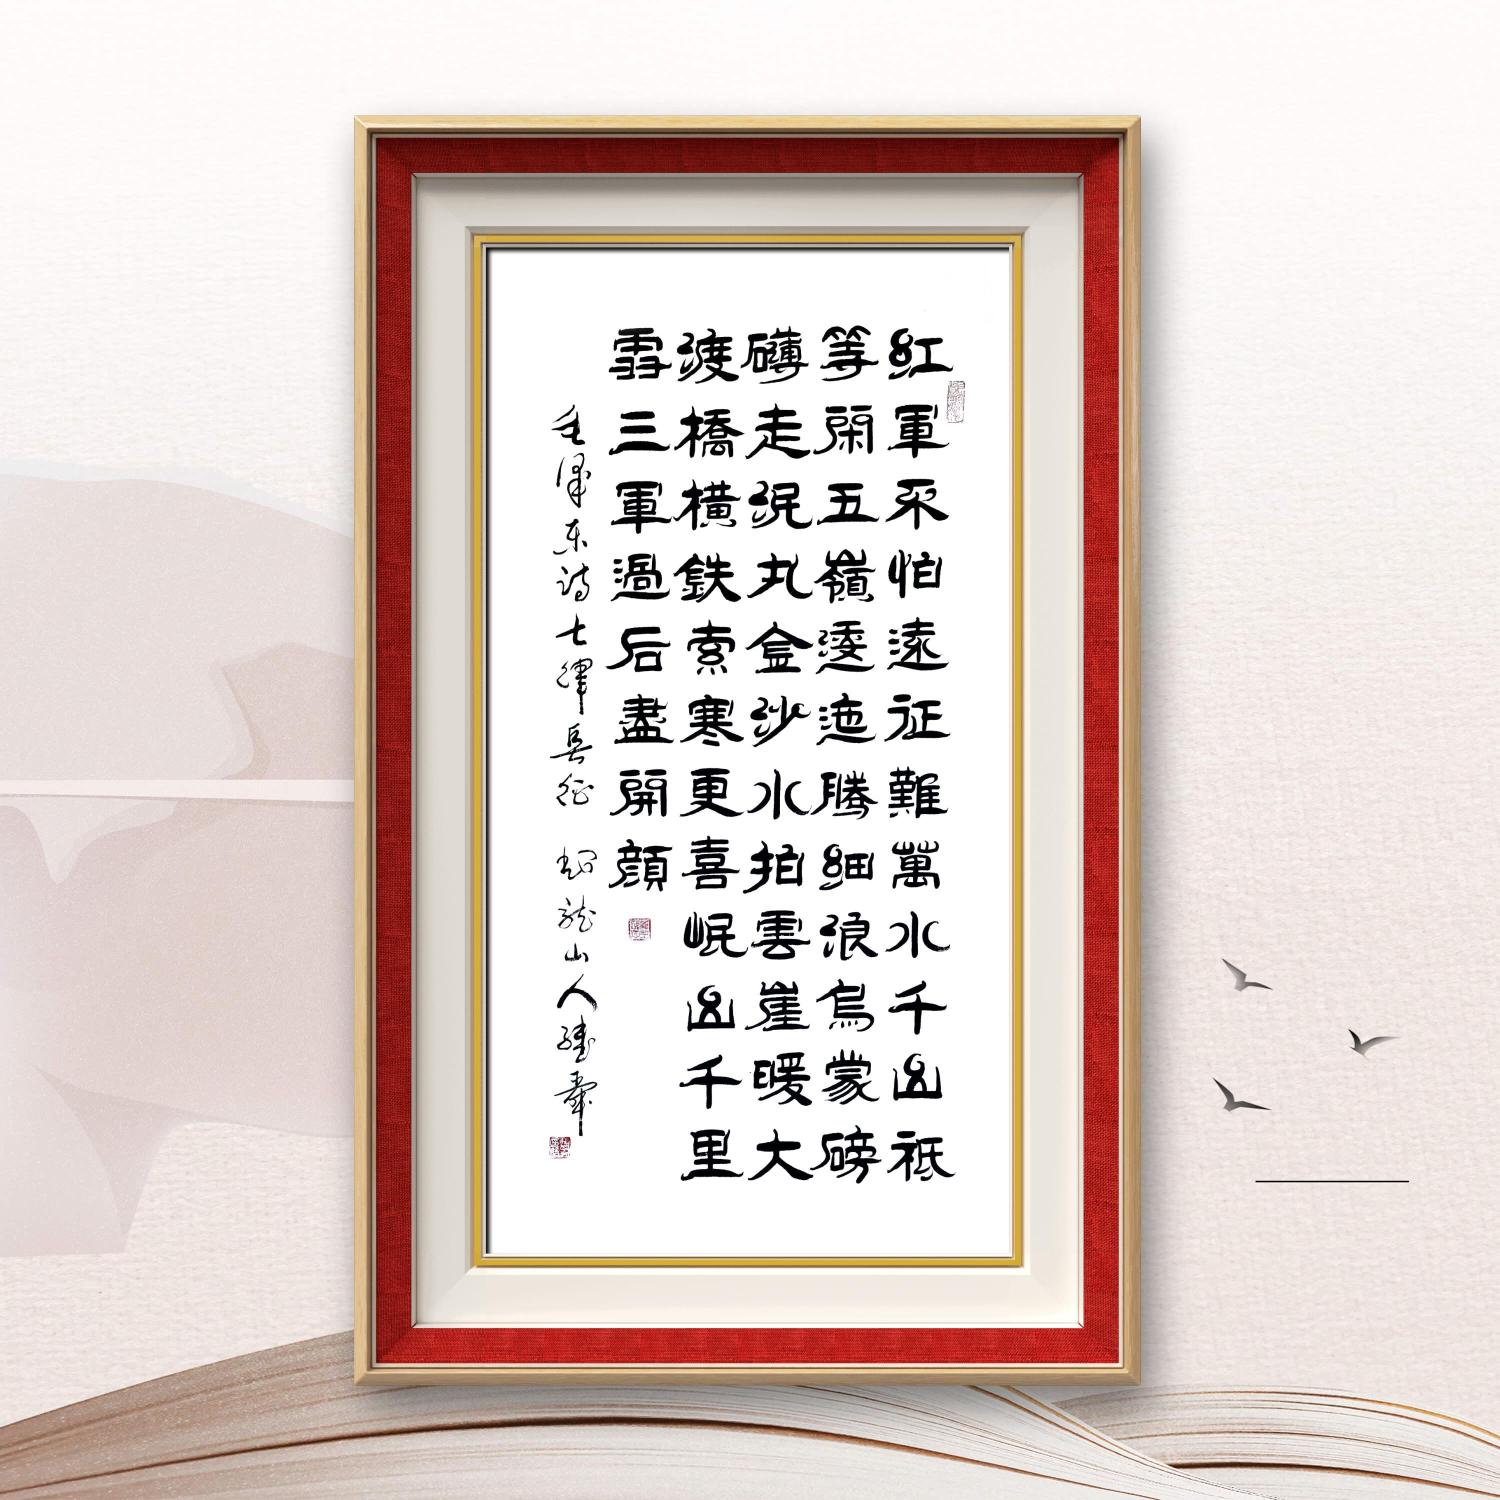 紅軍不怕遠征難萬水千山祇
等閑五嶺逶迤騰細浪烏蒙磅
礴走泥丸金沙水拍雲崖暖大
渡橋橫鉄索寒更喜岷山千里
雪三軍過后盡開顏
毛澤东诗七律長征 龙山人